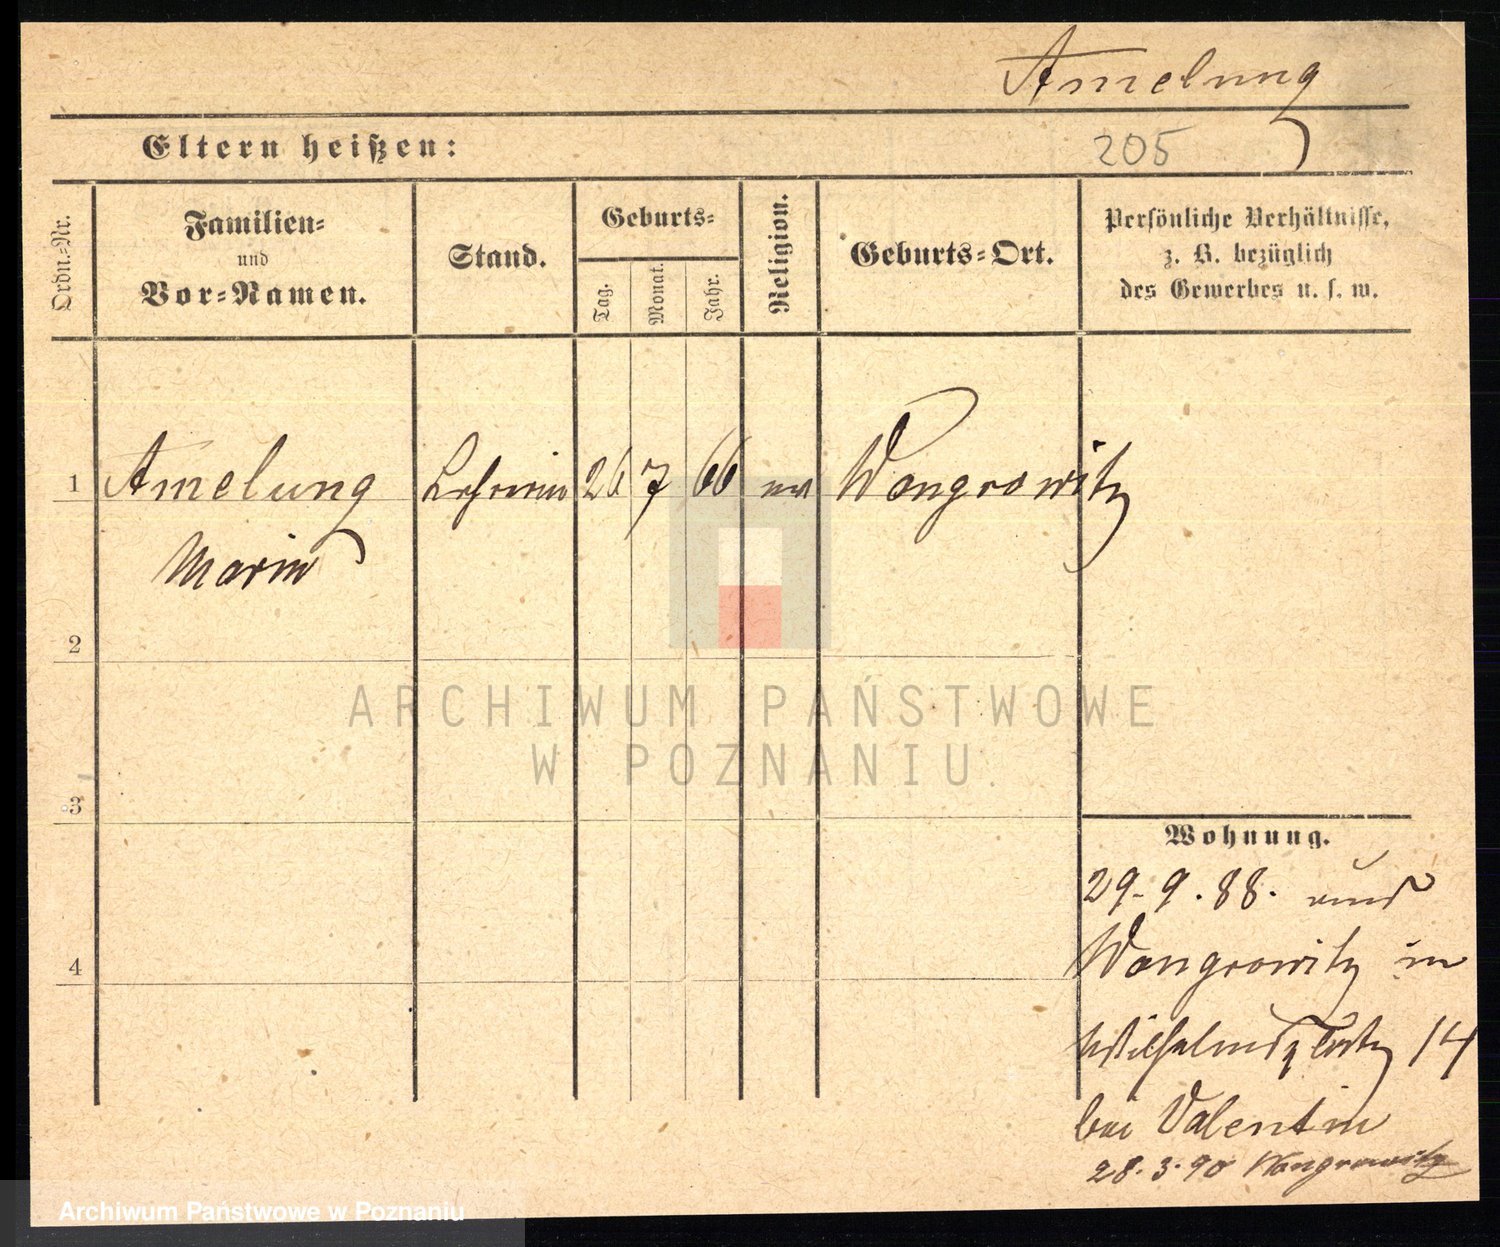 Amelung
Eltern heißen:
205
Ordn.-Nr.
Familien-
und
Vor-Namen.
Stand.
Geburts-
Tag.
Monat.
Jahr.
Religion.
Geburts-Ort.
Persönliche Verhältnisse,
z. B. bezüglich
des Gewerbes u. s. w.
1 Amelung Lehrerin 26 7 66 ev Wongrowitz
Marie
2
ARCHIWUM PAŃSTWOWE
W POZNANIU
3
Wohnung.
29.9.88. aus
Wongrowitz in
4
Wilhelmsplatz 14
bei Valentin
28.3.90 Wongrowitz
Archiwum Państwowe w Poznaniu